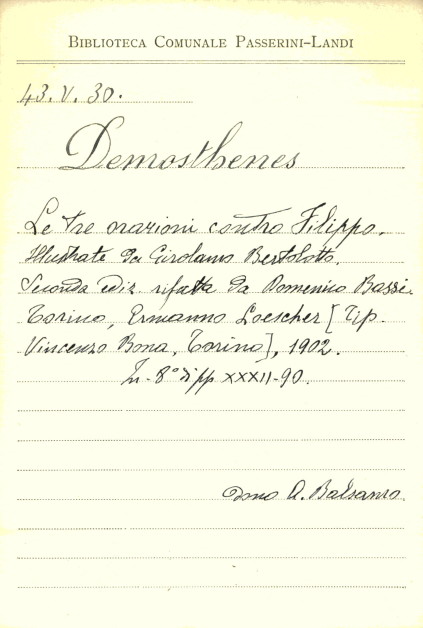 BIBLIOTECA COMUNALE PASSERINI-LANDI
43. V. 30.
Demosthenes
Le tre orazioni contro Filippo.
Illustrate da Girolamo Bertolotto.
Seconda ediz. rifatta da Domenico Bassi.
Torino, Ermanno Loescher [Tip.
Vincenzo Bona, Torino], 1902.
In-8° di pp XXXII-90.
dono A. Balsamo.